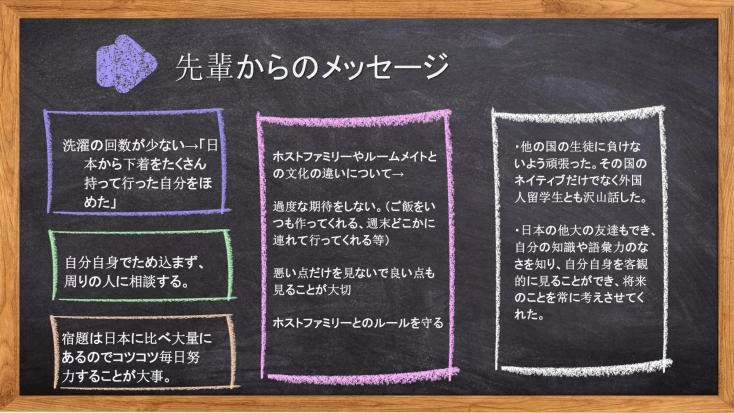 先輩からのメッセージ
洗濯の回数が少ない→「日
本から下着をたくさん
持って行った自分をほ
めた」
自分自身でため込まず、
周りの人に相談する。
宿題は日本に比べ大量に
あるのでコツコツ毎日努
力することが大事。
ホストファミリーやルームメイトと
の文化の違いについて→
過度な期待をしない。（ご飯をい
つも作ってくれる、週末どこかに
連れて行ってくれる等）
悪い点だけを見ないで良い点も
見ることが大切
ホストファミリーとのルールを守る
・他の国の生徒に負けな
いよう頑張った。その国の
ネイティブだけでなく外国
人留学生とも沢山話した。
・日本の他大の友達もでき、
自分の知識や語彙力のな
さを知り、自分自身を客観
的に見ることができ、将来
のことを常に考えさせてく
れた。